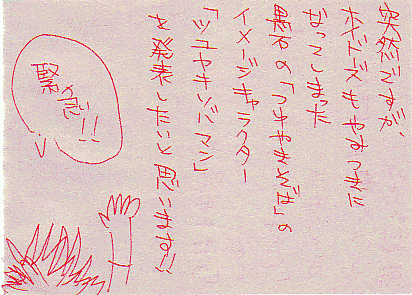 突然ですが、
ホンドーズもやすつぎに
なってしまった
黒石の「つゆやきそば」の
イメージキャラクター
「ツユヤキソバマン」
を発表したいと思います!!
緊急!!